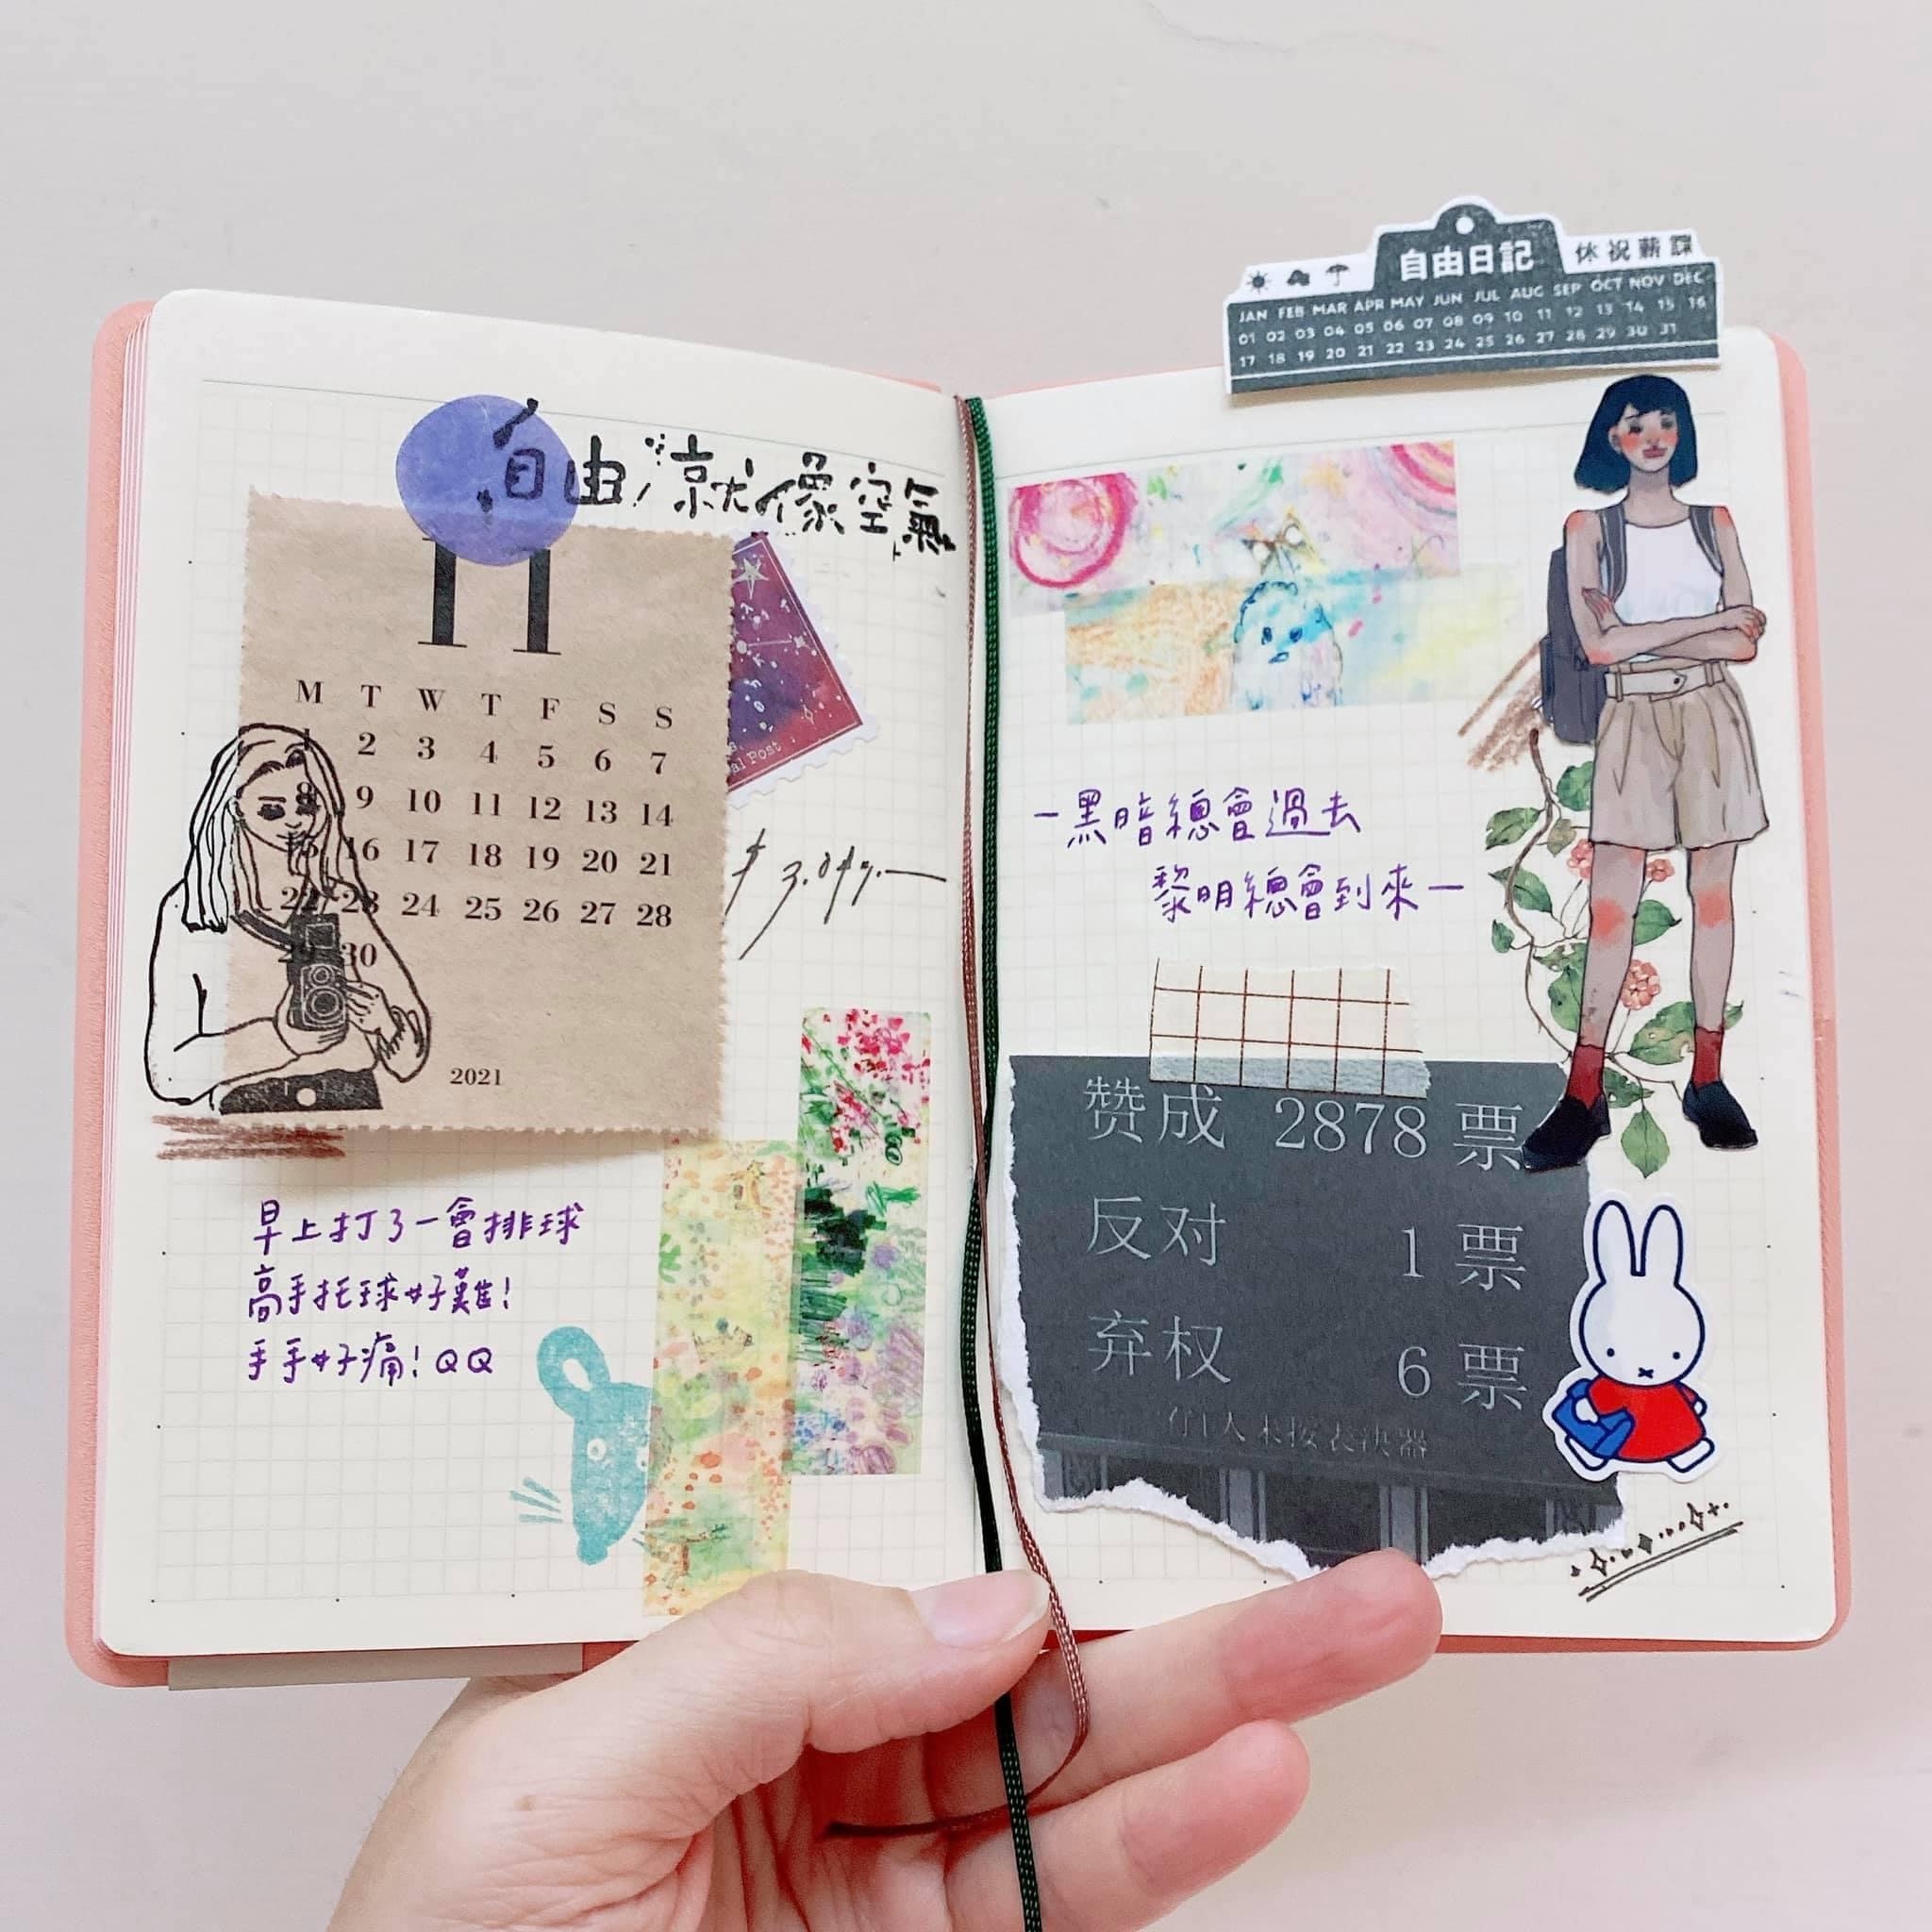 自由就像空氣
11
M T W T F S S
1 2 3 4 5 6 7
8 9 10 11 12 13 14
15 16 17 18 19 20 21
22 23 24 25 26 27 28
29 30
2021
al Post
早上打了一會排球
高手托球好難!
手手好痛!QQ
自由日記 休 祝 薪 課
JAN FEB MAR APR MAY JUN JUL AUG SEP OCT NOV DEC
01 02 03 04 05 06 07 08 09 10 11 12 13 14 15 16
17 18 19 20 21 22 23 24 25 26 27 28 29 30 31
—黑暗總會過去
黎明總會到來—
赞成 2878 票
反对 1 票
弃权 6 票
有1人未按表决器